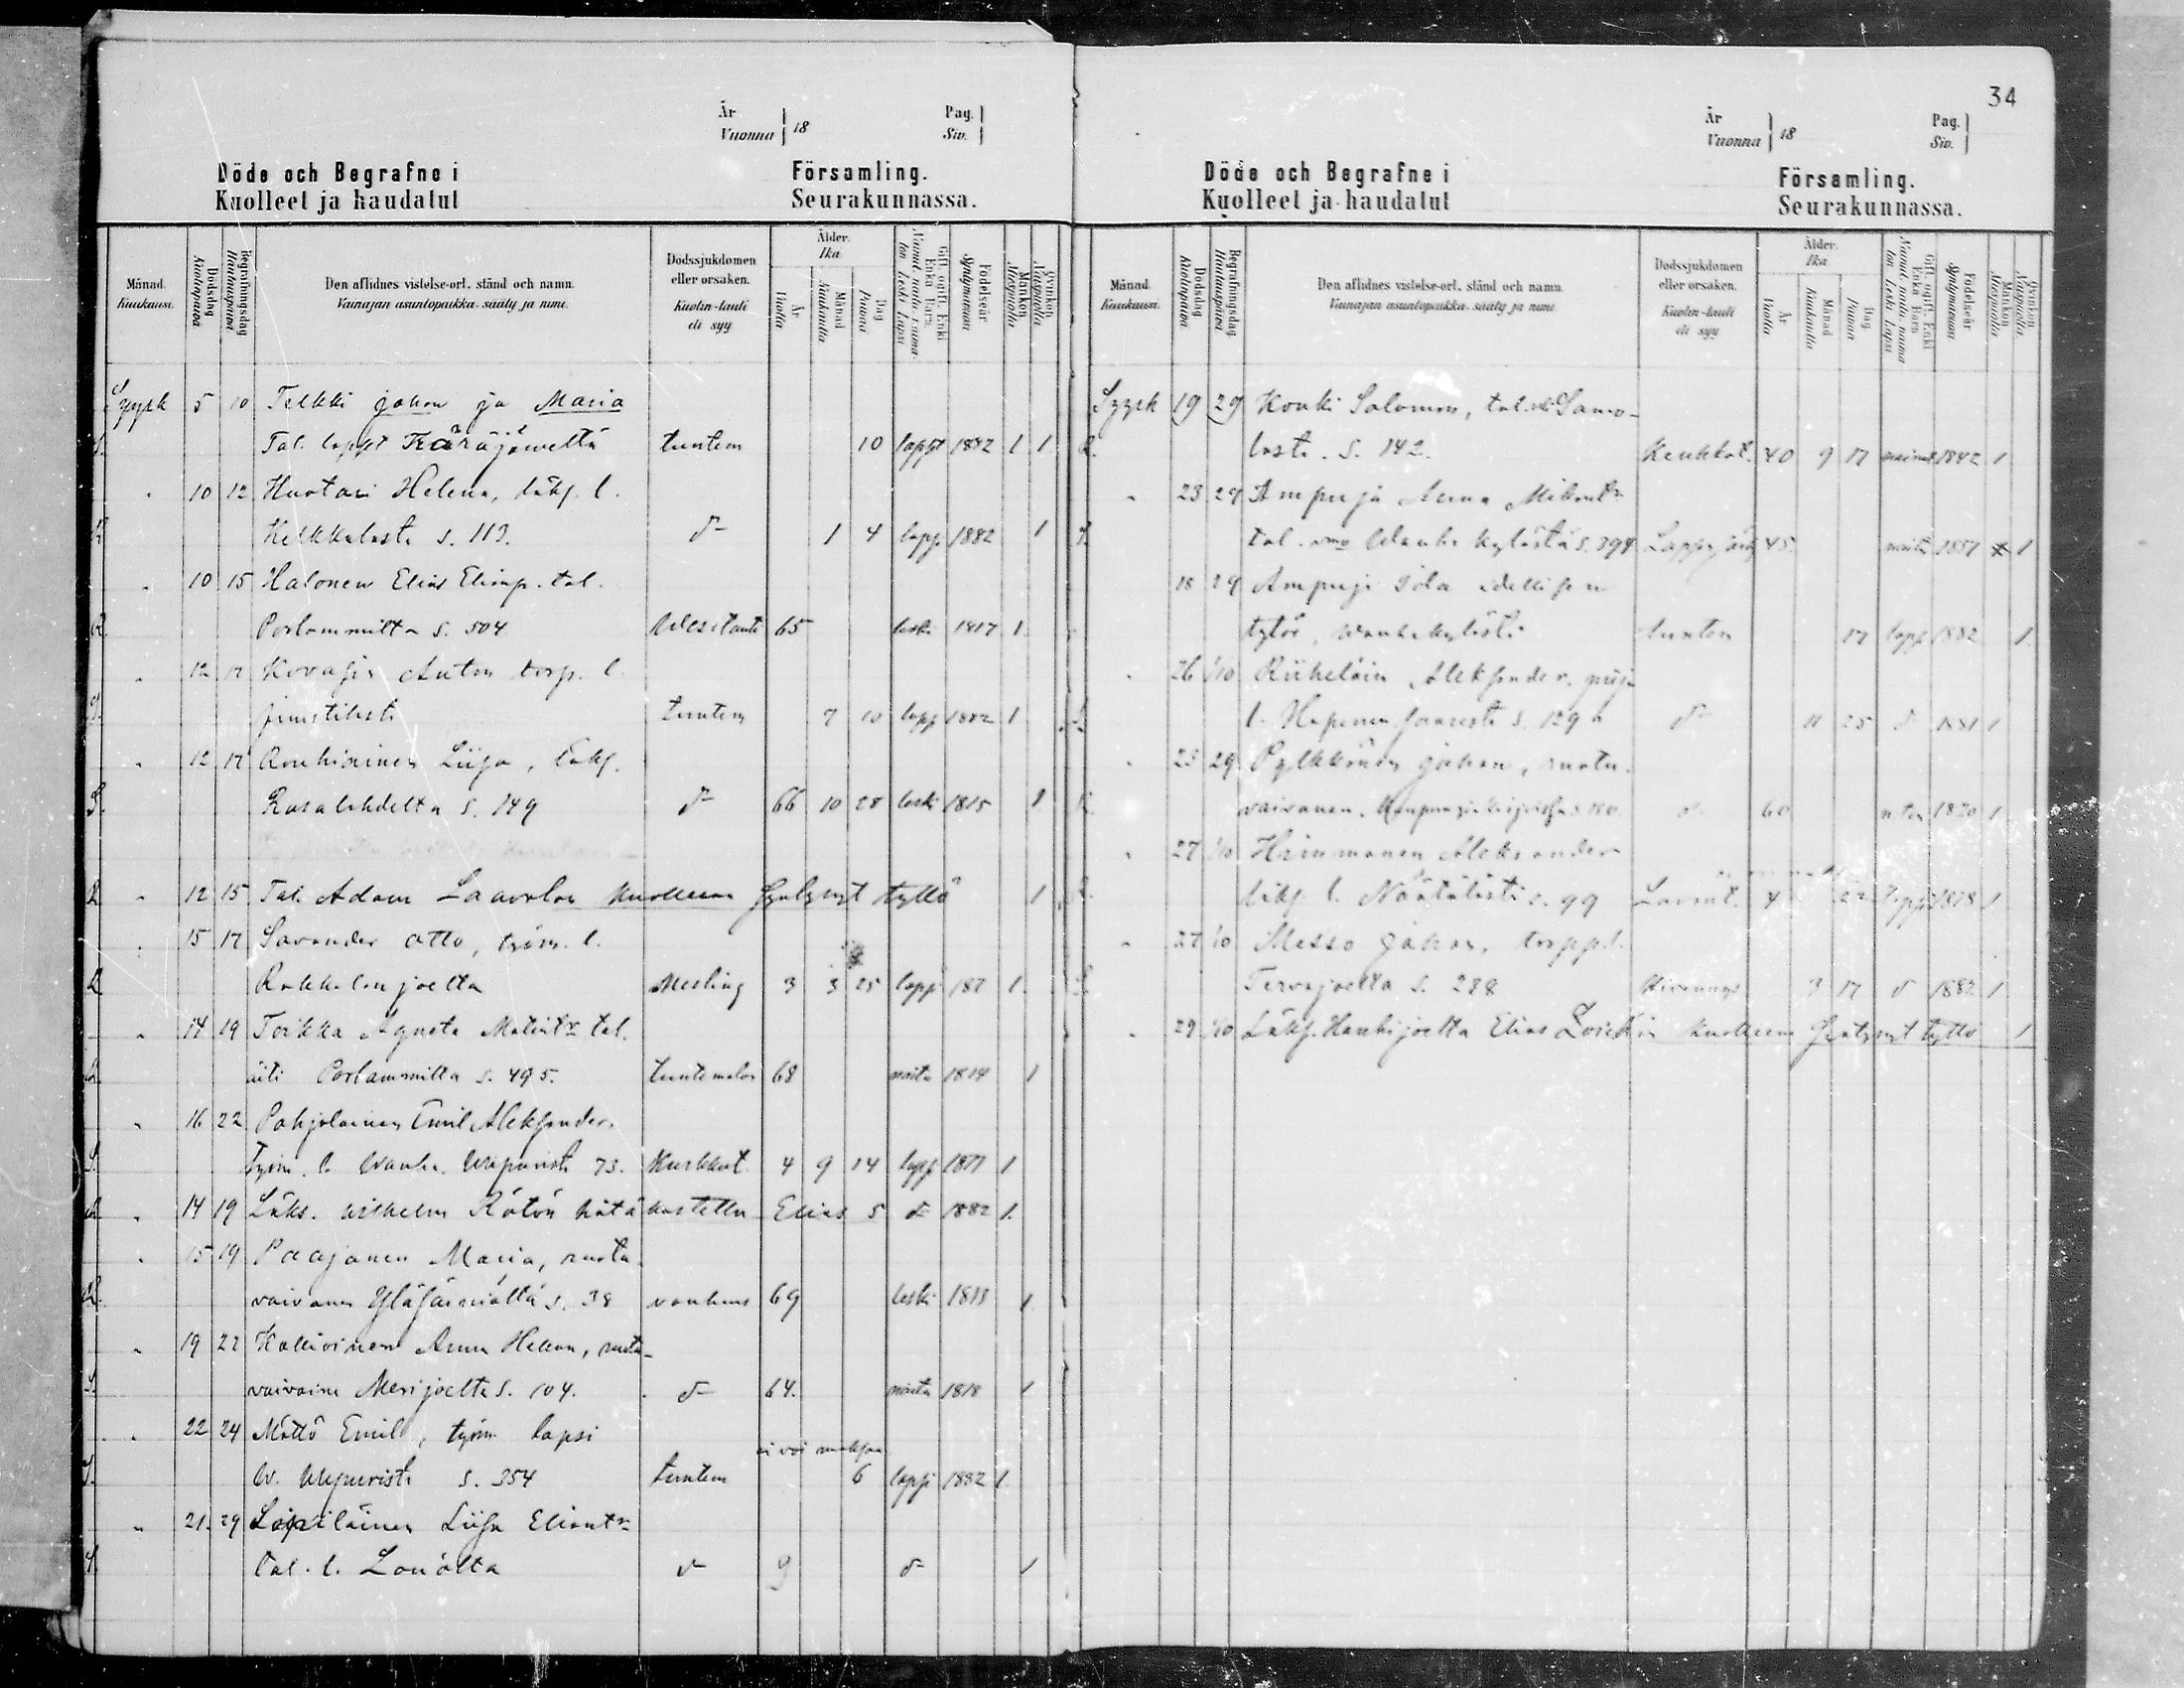 År
Vuonna 18
Pag.
Siv.
Döde och Begrafne i Församling.
Kuolleet ja haudatut Seurakunnassa.
Månad. Kuukausi.
Dödsdag Kuolinpäivä
Begrafningsdag Hautauspäivä
Den aflidnes vistelse-ort, stånd och namn.
Vainajan asuntopaikka, sääty ja nimi.
Dödssjukdomen eller orsaken.
Kuolin-tauti eli syy
Ålder. Ikä
År Vuotta
Månad Kuukautta
Dag Päivää
Gift, ogift, Enkl. Enka Barn
Födelseår Syntymävuosi
Mankön Miespuolia
Qvinkön Vaispuolia
Syysk 5 10 Telkki Johan ja Maria
Tal. lapset Käräjäveltä tuntem 10 lapset 1882 1 1
10 12 Huotari Helena, läks. l.
Kelkkalasta s. 113. d:o 1 4 laps. 1882 1
10 15 Halonen Elias Eliasp. tal.
Porlammilta s. 504. Wesitauti 65 leski 1817 1
12 17 Anton torp. l.
tuntem 7 10 laps 1882 1
12 17 Rouhiainen Liisa, läks.
Rasalahdelta s. 149 d:o 66 10 28 leski 1815 1
12 15 Tal. Adam Laavolan kuolleena syntynyt tyttö 1
15 17 Savander Otto, työm. l.
Rakkolanjoelta 3 3 25 lapsi 187 1.
14 19 Toikka Agneta Matint:r tal.
äiti Porlammilta s. 495. tuntematon 68 naitu 1814 1
16 22 Pohjolainen Emil Aleksander,
työm. l. Wanh. Wiipurista 73. Kurkkut. 4 9 14 laps 1877 1
14 19 Läks. Wilhelm Rötön hätäkastettu Elias 5 d:o 1882 1.
15 19 Paajanen Maria, ruotu
vaivanen Yläsäiniältä s. 38 vanhuus 69 leski 1813 1
19 22 Anna Helena, ruotu-
vaivainen Merijoelta s. 104. d:o 64. naitu 1818 1
22 24 Möttö Emil, työm lapsi
ei voi maksaa
W. Wiipurista s. 354 tuntem 6 lapsi 1882 1
21. 29 Läpiläinen Liisa Eliant:r
tal. l. Lonölta d:o 9 d:o 1
34
År
Vuonna 18
Pag.
Siv.
Döde och Begrafne i Församling.
Kuolleet ja haudatut Seurakunnassa.
Månad. Kuukausi.
Dödsdag Kuolinpäivä
Begrafningsdag Hautauspäivä
Den aflidnes vistelse-ort, stånd och namn.
Vainajan asuntopaikka, sääty ja nimi.
Dödssjukdomen eller orsaken.
Kuolin-tauti eli syy
Ålder. Ikä
År Vuotta
Månad Kuukautta
Dag Päivää
Gift, ogift, Enkl. Enka Barn
Födelseår Syntymävuosi
Mankön Miespuolia
Qvinkön Vaispuolia
Syysk 19 29 Kouki Salomon, tal. Samo-
lasta. s. 142. Keuhkot. 40 9 17 nainut 1842 1
23 29 Ampuja Anna Mikont:r
tal. vmo Wanha kylästä s. 394 45. naitu 1837 1
18 29 Ampuja Ida edellisen
tytär, Wanhakylästä tuntem 17 laps 1882 1.
26 1/10 Riiheläin Aleksander,
l. Hapenensaaresta s. 129 d:o 11 25 d:o 1881 1
23 29 Pylkkönen Johan, ruotu-
vaivanen. s. 180. d:o 60 1820 1
27 1/10 Hinnmonen Aleksander
läks. l. Näätälästä s. 99 4 22 lapsi 1878 1
27 1/10 Messo Johan, torpp. l.
Tervajoelta s. 288 3 17 d:o 1882 1
29 1/10 Läks. Hanhijoelta Elias kuolleena syntynyt tyttö 1